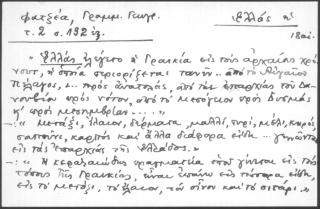 Φατζέα, Γραμμ. Γεωγρ.
Ἑλλάς ἡ
τ. 2 σ. 192 ἑξ.
18αι.
"Ἑλλάς ἐλέγετο ἡ Γραικία εἰς τοὺς ἀρχαίους χρό-
νους, ἡ ὁποία περιορίζεται τανῦν .. ἀπὸ τὸ Αἰγαῖον
Πέλαγος, .. πρὸς ἀνατολάς, ἀπὸ τὰς ἐπαρχίας τοῦ Δα-
νουβίου πρὸς νότον, ἀπὸ τὸ μεσόγειον πρὸς δυσμάς
κ' πρὸς μεσημβρίαν ...."
— : "Μετάξι, ἔλαιον, δέρματα, μαλλί, τυρί, μέλι, κηρός,
σαπούνι, καρπὸς καὶ ἄλλα διάφορα εἴδη ... γεννῶνται
εἰς τὰς ἐπαρχίας τῆς Ἑλλάδος."
— : "Ἡ κεφαλαιώδης πραγματεία ὁποῦ γίνεται εἰς τοὺς
τόπους τῆς Γραικίας, εἶναι ἐπάνω εἰς τέσσαρα εἴδη,
εἰς τὸ μετάξι, τὸ ἔλαιον, τὸν οἶνον καὶ τὸ σιτάρι."